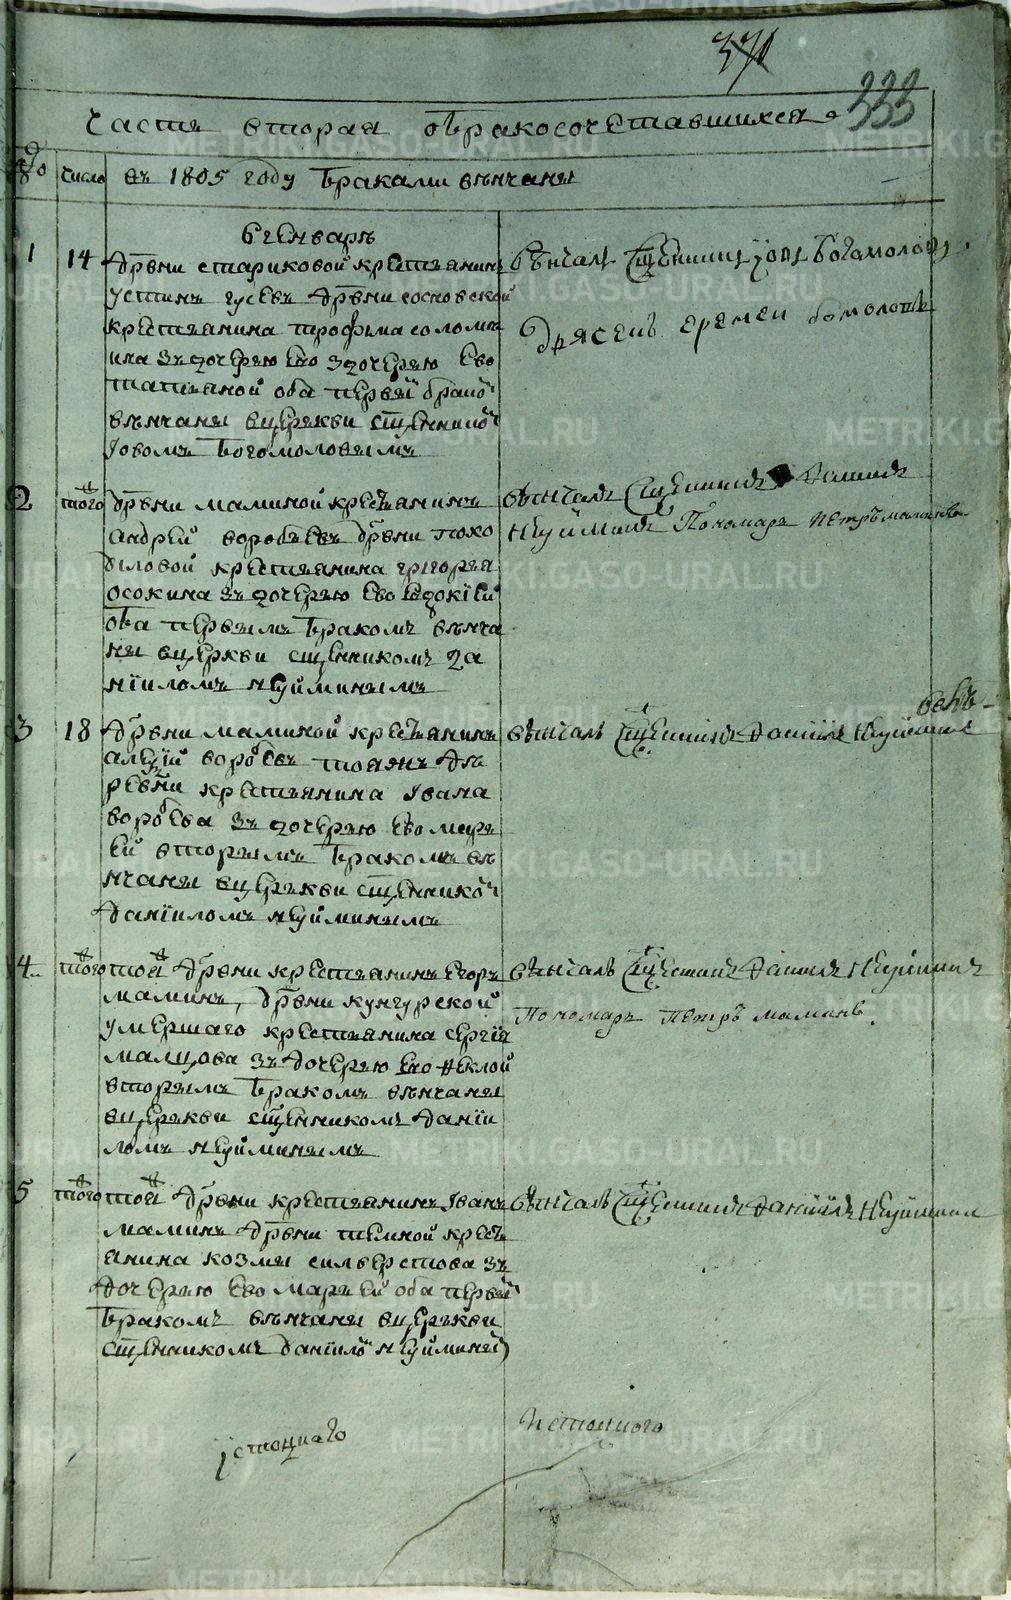 371
333
Часть вторая о бракосочетавшихся
№ число въ 1805 году браками венчаны
в генваре
1 14 дрвни стариковой крестьянинъ
устинъ гусевъ дрвни сосновской
крестьянина трофима соломе
ина зъ дочерью ево здочерью ево
татьяной оба первы брако
венчаны вцерькви сщенико
Іовомъ Богомоловымъ
венчалъ Сщенникъ Іовъ Богомоловъ
2 того дрвни маминой крестьянинъ
андрей воробьевъ дрвни поко
диловой крестьянина григорья
осокина зъ дочерью ево евдокіей
оба первымъ бракомъ венча
ны вцеркви сщенникомъ да
ніиломъ неуйминымъ
венчалъ Сщенникъ Даниилъ
Неуйминъ Пономарь петръ маминъ
3 18 дрвни маминой крестьянинъ
алеѯій воробьевъ тояжъ де
ревни крестьянина Ивана
воробьева зъ дочерью ево марь
ей вторымъ бракомъ ве
нчаны вцерькви сщеннико
Даніиломъ неуйминымъ
венчалъ Сщенникъ Даніилъ Неуйминъ
4 того той дрвни крестьянинъ егоръ
маминъ, дрвни кунгурской
умершаго крестьянина сергія
малцова зъ дочерью ево феклой
вторымъ бракомъ венчаны
вцерькви сщенникомъ даніи
ломъ неуйминымъ
венчалъ Сщенникъ Даниилъ Неуйминъ
Пономарь Петръ маминъ
5 того той дрвни крестьянинъ Іванъ
маминъ дрвни темной кресть
янина козмы сильверстова зъ
дочерью ево марьей оба первы
бракомъ венчаны вцерькви
сщенникомъ даніило неуймины
венчалъ Сщенникъ Даніилъ Неуйминъ